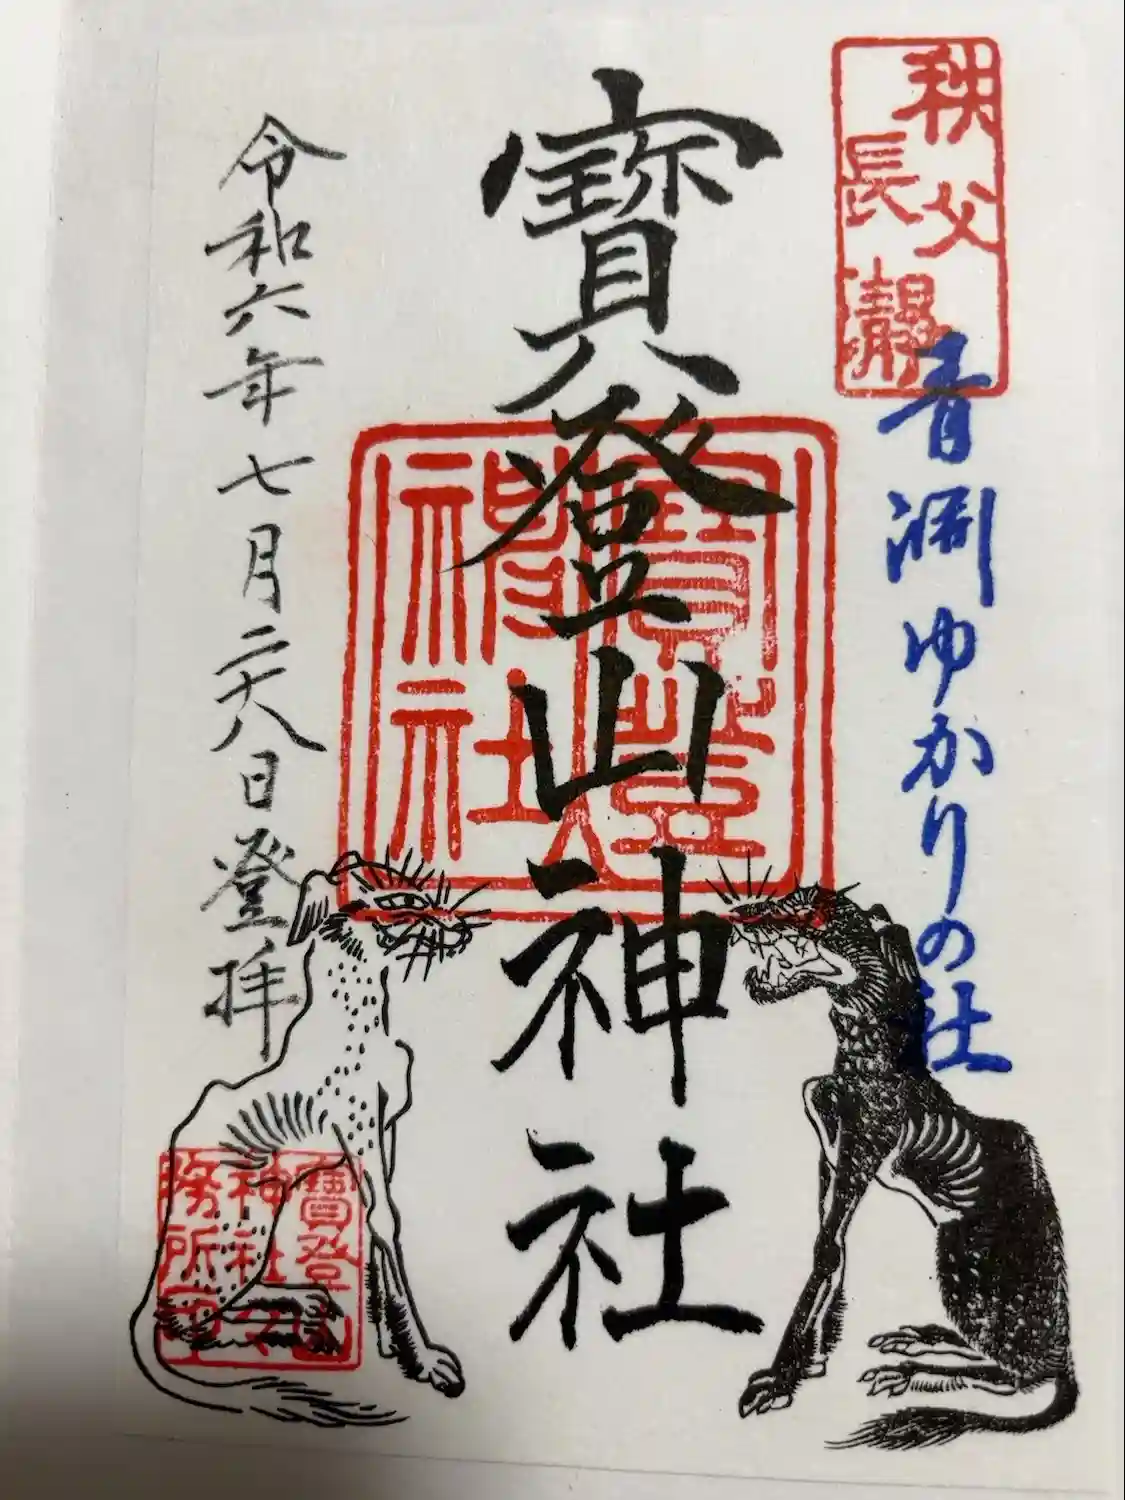 秩父
長瀞
青淵ゆかりの社
寳登山神社
寳登
神社
令和六年七月二十八日登拝
寳登山
神社之
務所印